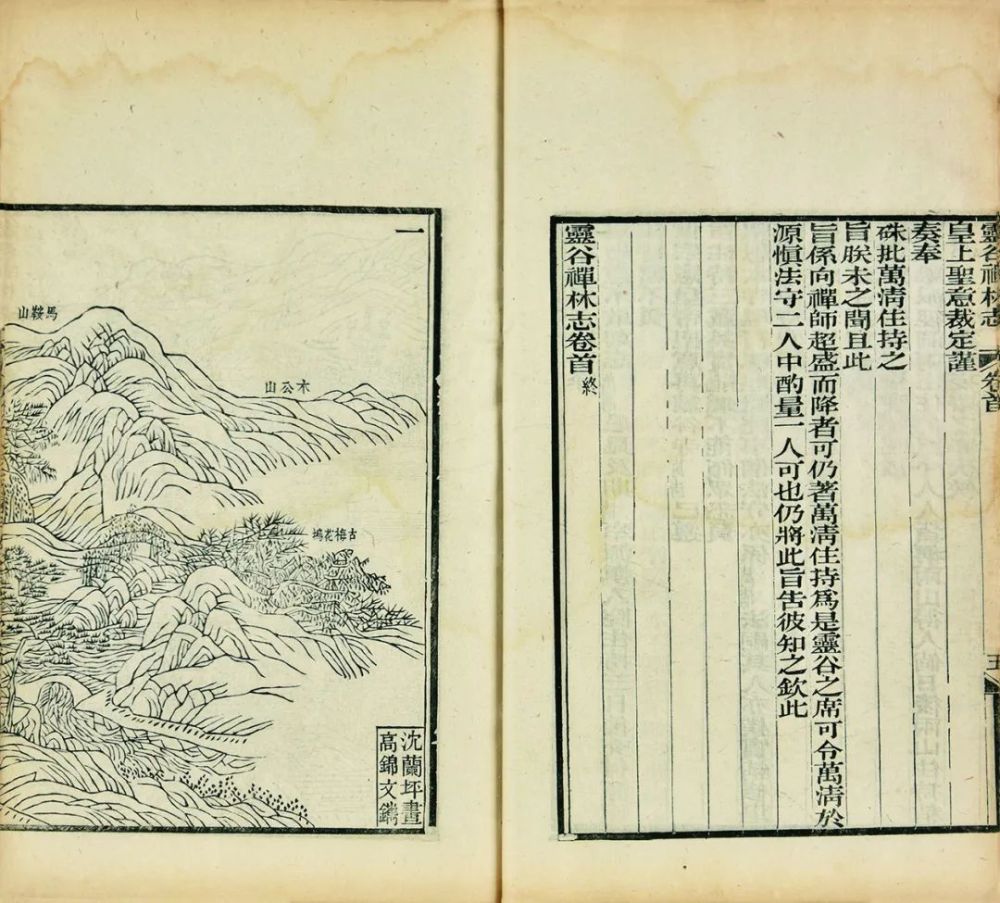 靈谷禪林志 卷首
皇上聖意裁定謹
奏奉
硃批萬淸住持之
旨朕未之聞且此
旨係向禪師超盛而降者可仍著萬淸住持爲是靈谷之席可令萬淸於
源愼法守二人中酌量一人可也仍將此旨吿彼知之欽此
靈谷禪林志卷首終
一
木公山
馬鞍山
古梅花塢
沈蘭坪畫
高錦文鐫